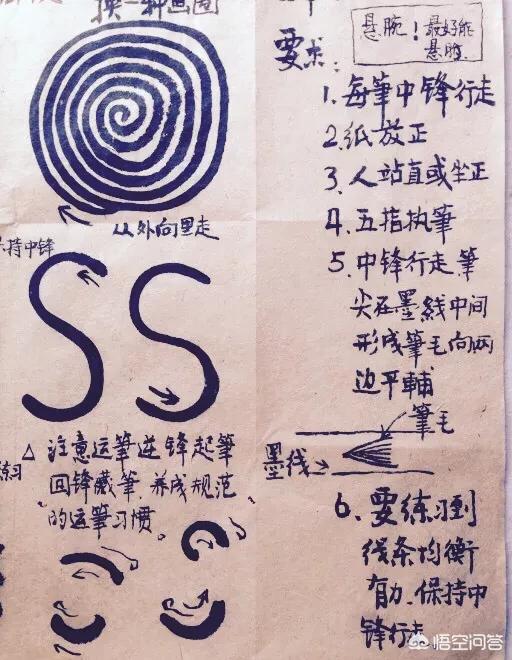 换一种画圈
从外向里走
持中锋
△ 注意运筆逆锋起筆
回锋藏筆.养成规范
的运筆习惯。
练习
悬腕！最好能
悬肘.
要求：
1. 每筆中锋行走
2.纸放正
3、人站直或坐正
4. 五指执筆
5. 中锋行走.筆
尖在墨线中间
形成筆毛向两
边平輔
筆毛
墨线→
6、要练习到
线条均衡
有力.保持中
锋行走.
悟空问答